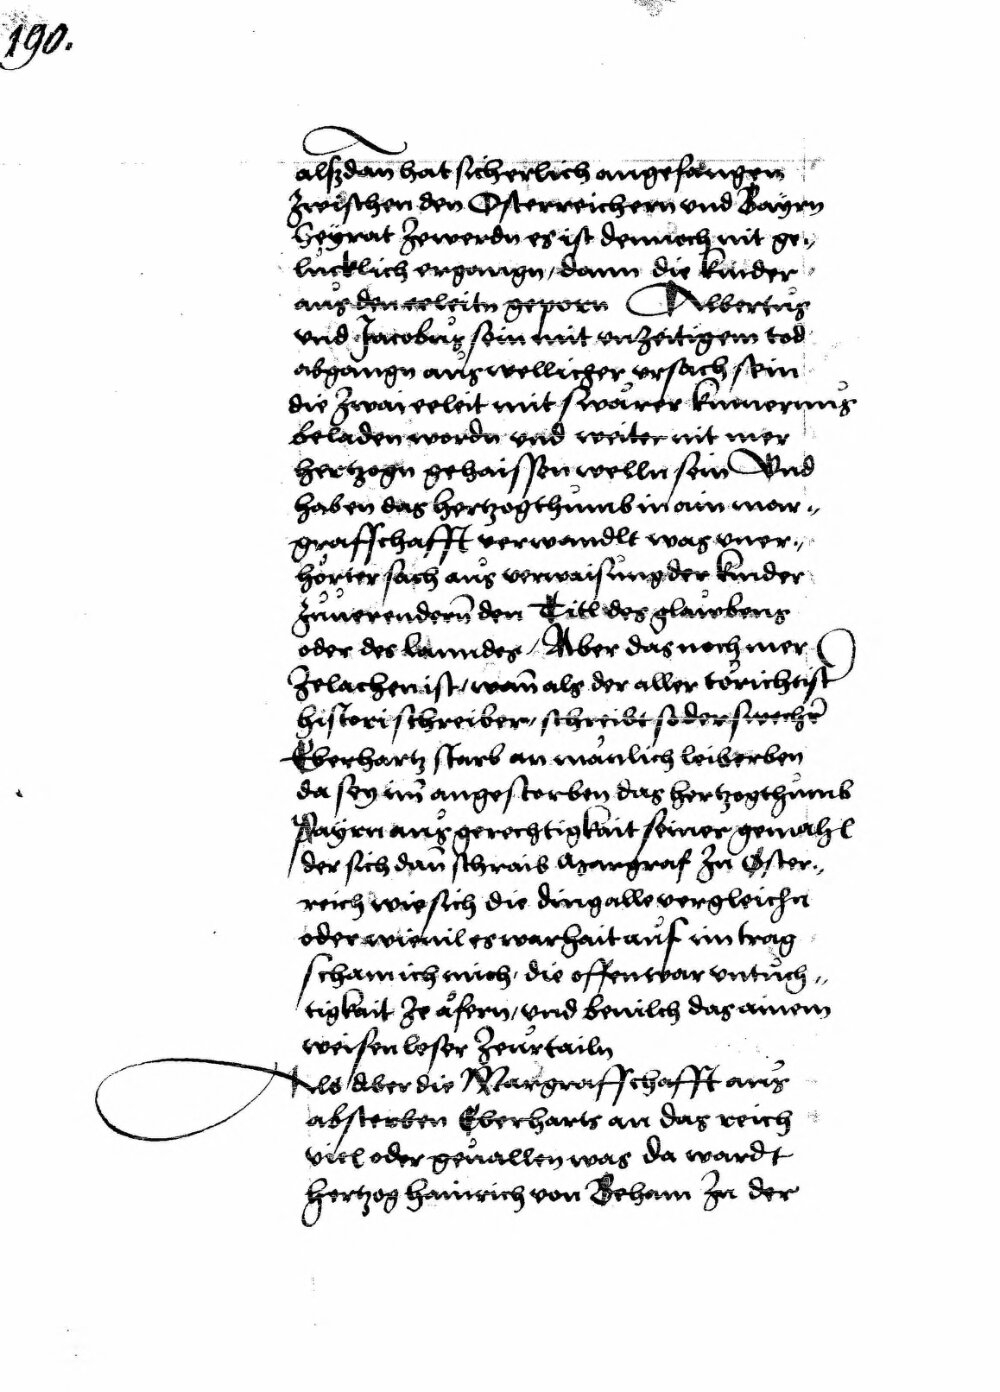 190.
alsz dan hat sicherlich angefangen
Zwischen den Osterreichern vnd Bayrn
Heyrat Zewerdn es ist dennoch nit ge„
lucklich ergangn / dann die kinder
aus den eeleitn geporn Albertus
vnd Jacobus sein mit vnzeitigem tod
abgangn aus wellicher vrsach sein
die Zwai eeleit mit swarer kumernus
beladen wordn vnd weiter nit mer
hertzogn gehaissen welln sein Vnd
haben das hertzogthumb in ain mar„
grafschafft verwandlt was vner„
hörter sach aus verwaisung der kinder
Zuuerendern̄ den Titl des glawbens
oder des lanndes / Aber das noch mer
Zelachen ist / wan̄ als der aller torichtist
histori schreiber / schreibt so der swecher
Eberhartz starb an manlich leiberben
da sey im̄ angestorben das hertzogthumb
Payrn aus gerechtigkait seiner gemahl
der sich dan̄ schraib Margraf Zu Oster„
reich wie sich die ding alle vergleichn
oder wieuil es warhait auf im trag
scham ich mich / die offenwar vntuch„
tigkait Ze äfern / vnd beuilch das ainem
weisen leser Zeurtailn
Als Aber die Margrafschafft aus
absterben Eberharts an das reich
viel oder geuallen was da wardt
hertzog hainrich von Beham In der